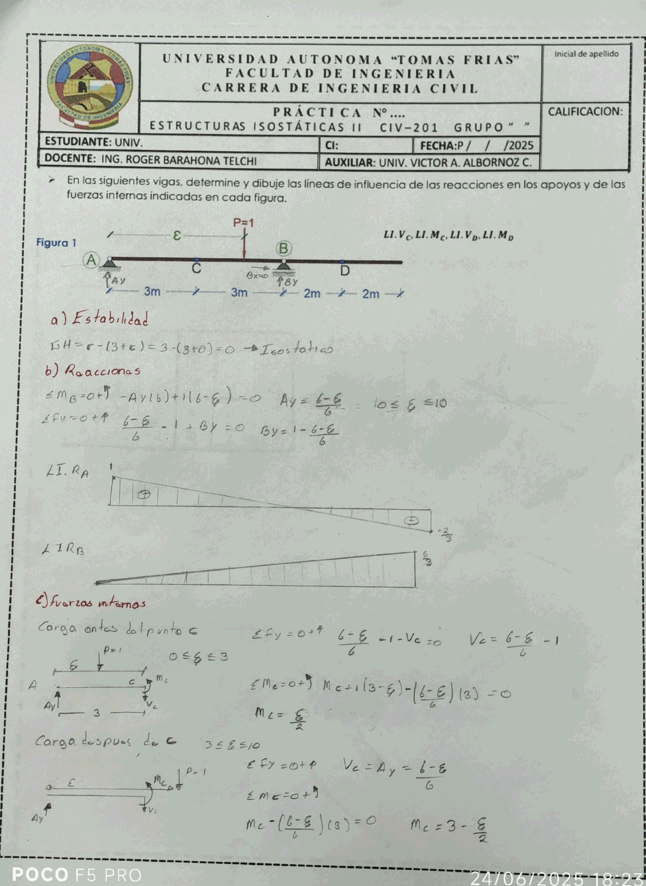 UNIVERSIDAD AUTONOMA “TOMAS FRIAS”
FACULTAD DE INGENIERIA
CARRERA DE INGENIERIA CIVIL
Inicial de apellido
PRÁCTICA Nº....
ESTRUCTURAS ISOSTÁTICAS II CIV-201 GRUPO “ ”
CALIFICACION:
ESTUDIANTE: UNIV.
CI:
FECHA:P / / /2025
DOCENTE: ING. ROGER BARAHONA TELCHI
AUXILIAR: UNIV. VICTOR A. ALBORNOZ C.
➢ En las siguientes vigas, determine y dibuje las lineas de influencia de las reacciones en los apoyos y de las
fuerzas internas indicadas en cada figura.
Figura 1
P=1
LI.V_C, LI.M_C, LI.V_D, LI.M_D
ξ
A
B
C
D
Bx=0
Ay
By
3m 3m 2m 2m
a) Estabilidad
GH = r-(3+c) = 3-(3+0) = 0 → Isostatico
b) Reacciones
ΣM_B=0+ -Ay(6)+1(6-ξ)=0 Ay = (6-ξ)/6 10 ≤ ξ ≤10
ΣFy=0+↑ (6-ξ)/6 - 1 + By = 0 By = 1 - (6-ξ)/6
LI.R_A
1
+
-
-2/3
LI R_B
5/3
c) fuerzas internas
Carga antes del punto C
ΣFy=0+↑ (6-ξ)/6 -1-Vc=0 Vc = (6-ξ)/6 - 1
P=1
0≤ξ≤3
ξ
A
C
Mc
Ay
Vc
3
ΣMc=0+ Mc+1(3-ξ)-((6-ξ)/6)(3) = 0
Mc = ξ/2
Carga despues de C 3≤ξ≤10
ΣFy=0+↑ Vc = Ay = (6-ξ)/6
ξ
Mc
P=1
Vc
Ay
ΣMc=0+
Mc-((6-ξ)/6)(3)=0 Mc = 3 - ξ/2
POCO F5 PRO
24/06/2025 18:23